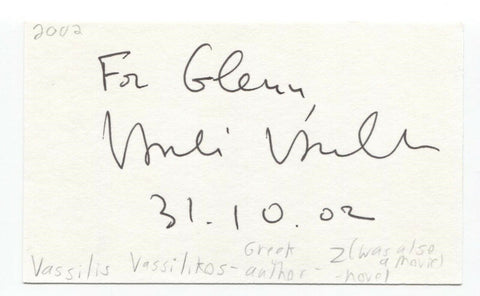 2002
For Glenn,
Vassili Vassilik
31.10.02
Vassilis Vassilikos - Greek author - Z (was also a movie) - novel